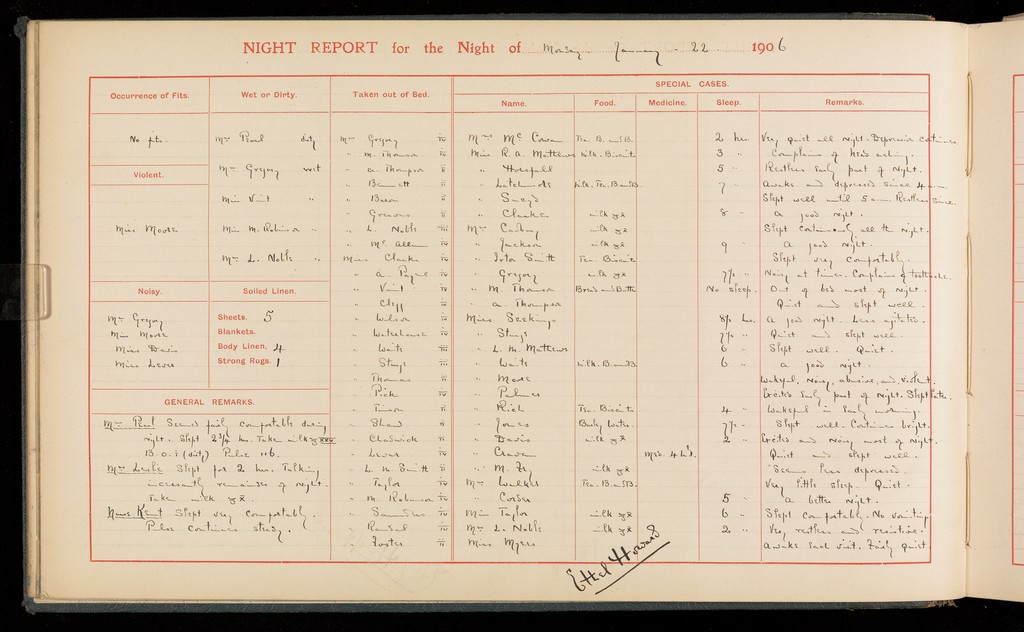 NIGHT REPORT for the Night of Monday January 22 1906
Occurrence of Fits.
No fits.
Violent.
Miss Moore
Noisy.
Mrs Gregory
Miss Moore
Miss Davis
Miss Lever
Wet or Dirty.
Mrs Paul dirty
Mrs Gregory wet
Miss Vint "
Miss M. Robinson "
Mrs L. Noble "
Soiled Linen.
Sheets. 5
Blankets.
Body Linen. 4
Strong Rugs. 1
GENERAL REMARKS.
Mrs Paul Seemed fairly comfortable during
night. Slept 2 3/4 hrs. Take milk
B.O.i (dirty) Pulse 116.
Mrs Leslie Slept for 2 hrs. Talking
incessantly remainder of night.
Take milk
Kent Slept very comfortably.
Pulse continues steady.
Taken out of Bed.
Mrs Gregory
" M. Thomson
" A. Thompson
" Bennett
"
" Greaves
" L. Noble
" Mc
Miss Clarke
" A. Payne
" Vint
" Clegg
" Wilson
" Waterhouse
" Waite
" Stays
" Thomas
" Pick
"
" Shaw
" Chadwick
" Lever
" L. M. Smith
" Taylor
" M. Robinson
" Saunders
"
" Foster
SPECIAL CASES.
Name. Food. Medicine. Sleep. Remarks.
Mrs Mc Cowan Tea. B. and B. 2 hrs Very quiet all night. Depression continues
Miss R. A. Matthews Milk. Biscuits 3 " Complains of head aching.
" 5 " Restless early part of night.
" Milk. Tea. B and B. 7 " Awake and depressed since 4 a.m.
" Slept well until 5 a.m. Restless since.
" Clarke milk 8 " A good night.
Mrs Cadbury milk Slept continuously all the night.
" Jackson milk 9 " A good night.
" Smith Tea. Biscuits Slept very comfortably.
" Gregory milk 7½ " Noisy at times. Complains of toothache.
" M. Thomson Bread and Butter No sleep. Out of bed most of night.
" A. Thompson Quiet and slept well.
Miss 8½ hrs. A good night. Less agitated.
" Stays 7½ " Quiet and slept well.
" L. M. Matthews 6 " Slept well. Quiet.
" Waite Milk. B and B. 6 " A good night.
" Moore Wakeful, noisy, abusive, and violent.
" Palmer Excited early part of night. Slept later.
" Rich Tea. Biscuits 4 " Wakeful in early morning.
" Jones Barley Water. 7½ " Slept well. Continues bright.
" Davis milk 2 " Excited and noisy most of night.
" Craven Med. 4 hrl. Quiet and slept well.
" M. Fry milk Seems less depressed.
Mrs Walker Tea. B and B. Very little sleep. Quiet.
" 5 " A better night.
Miss Taylor milk 6 " Slept comfortably. No vomiting.
Mrs L. Noble milk 2 " Very restless and resistive.
Miss Myers Awake each visit. Fairly quiet.
Ethel Howard